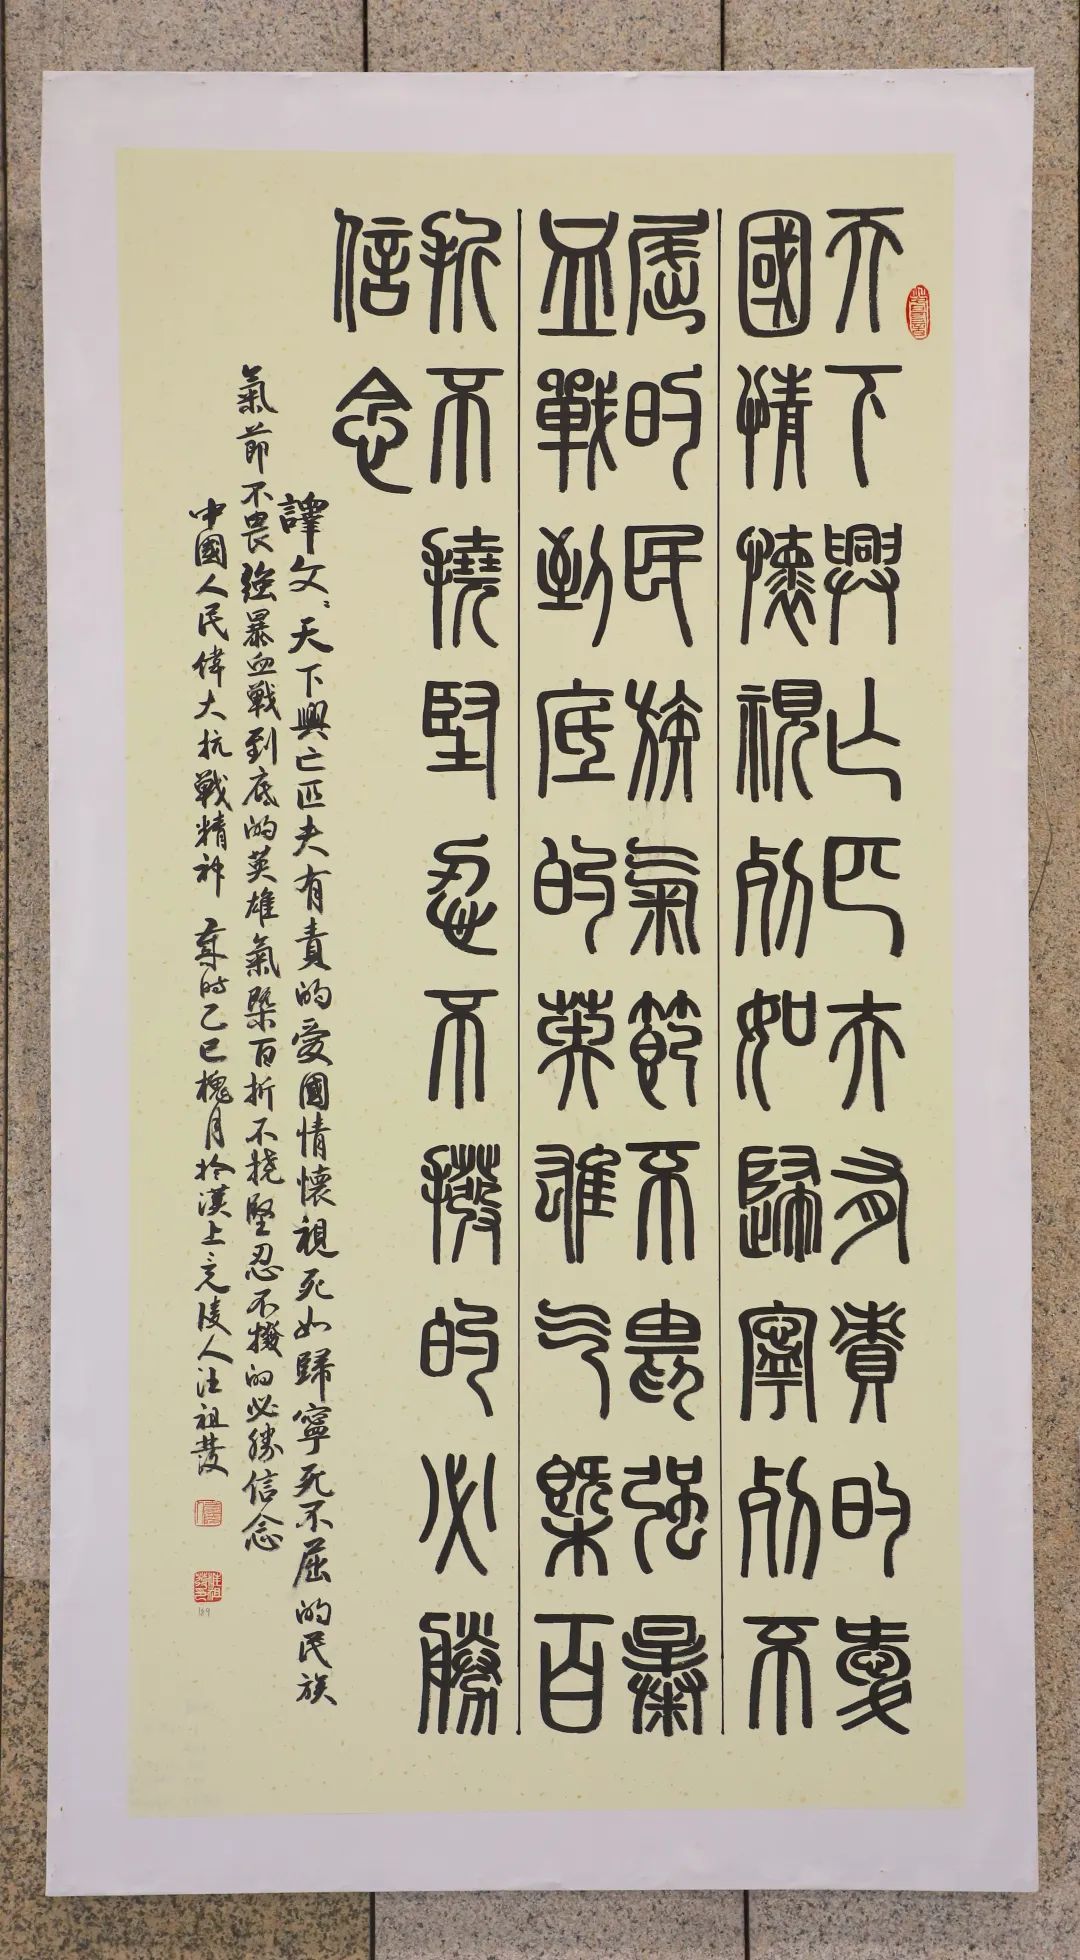 天下興亡匹夫有責的愛
國情懷視死如歸寧死不
屈的民族氣節不畏强暴
血戰到底的英雄气概百
折不撓堅忍不拔的必勝
信念
譯文：天下興亡匹夫有責的愛國情懷視死如歸寧死不屈的民族
氣節不畏強暴血戰到底的英雄氣槩百折不撓堅忍不撥的必勝信念
中國人民偉大抗戰精神 時乙巳槐月於漢上竟陵人汪祖發
169